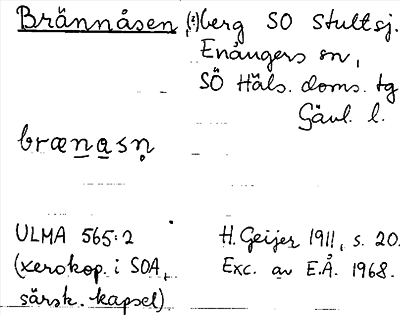 Brännåsen, (:)berg SO Stultsj.
Enångers sn,
SÖ Häls. doms. tg
Gävl. l.
brænasn̥
ULMA 565:2
(xerokop. i SOA,
särsk. kapsel)
H. Geijer 1911, s. 20.
Exc. av E.Å. 1968.